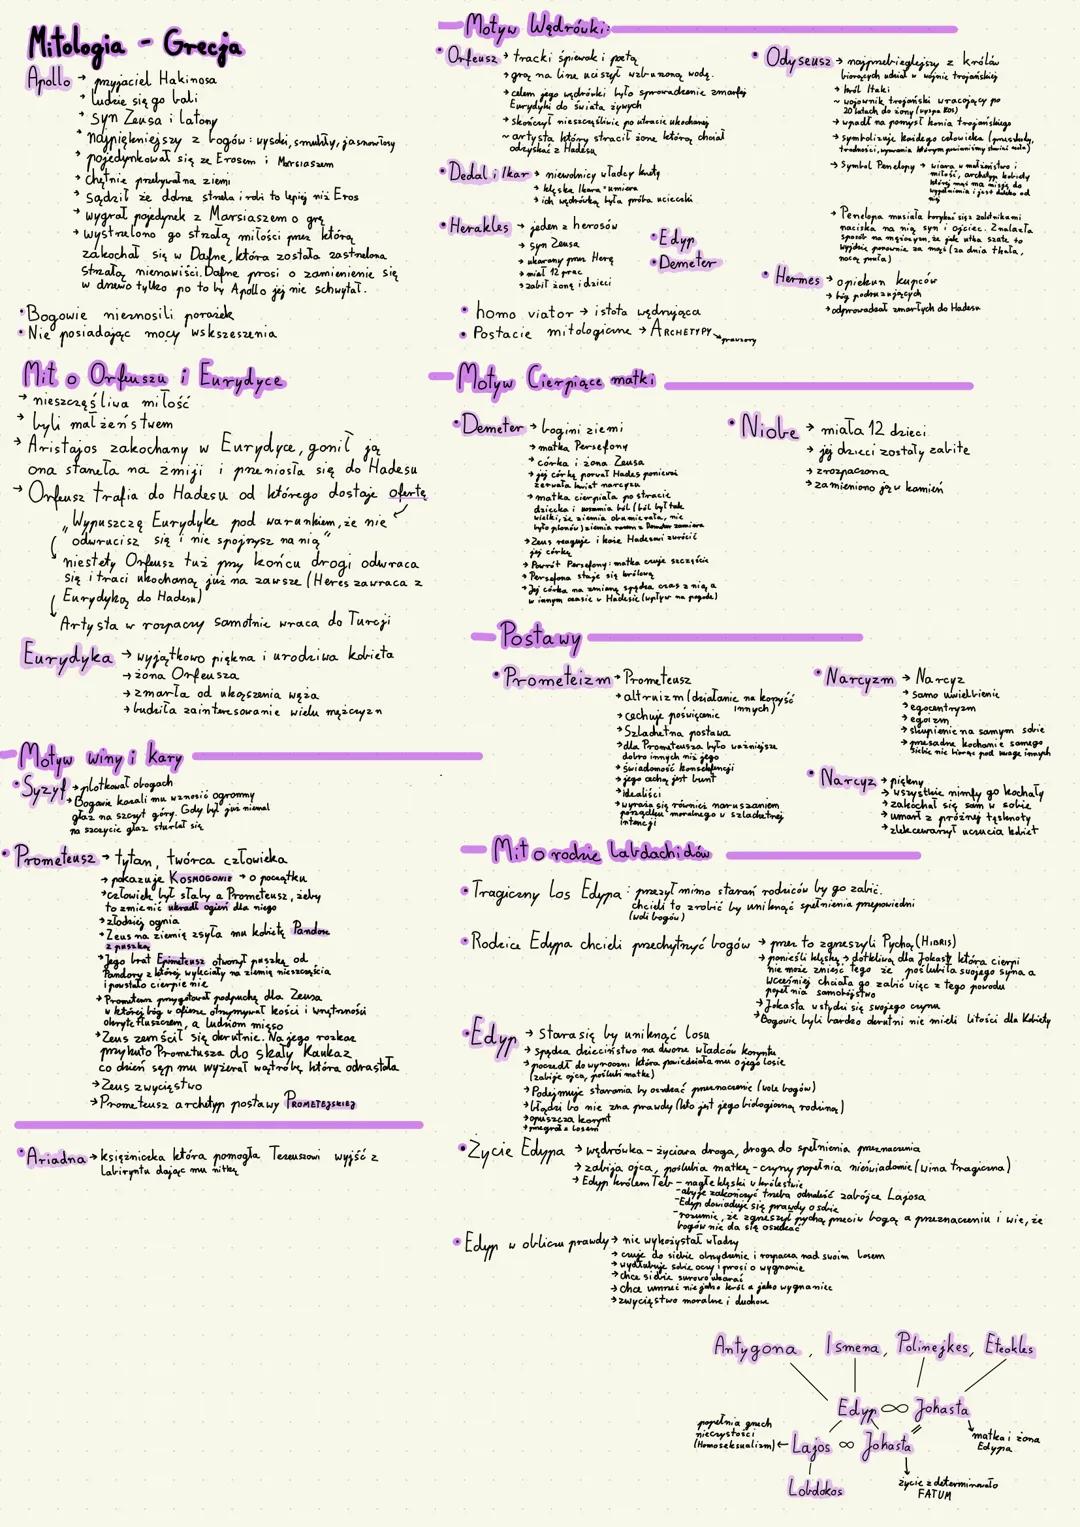 Mitologia - Grecja
Apollo → przyjaciel Hakinosa
→ ludzie się go bali
→ syn Zeusa i latony
→ najpiękniejszy z bogów: wysoki, smukły, jasnowłosy
→ pojedynkował się ze Erosem i Marsiaszem
→ chętnie przebywał na ziemi
→ sądził że dobrze strzela i robi to lepiej niż Eros
→ wygrał pojedynek z Marsiaszem o grę
→ wystrzelono go strzałą miłości przez którą
zakochał się w Dafne, która została zastrzelona
strzałą nienawiści. Dafne prosi o zamienienie się
w drzewo tylko po to by Apollo jej nie schwytał.
• Bogowie nieznosili porażek
• Nie posiadając mocy wskszeszenia
Mit o Orfeuszu i Eurydyce
→ nieszczęśliwa miłość
→ byli małżeństwem
→ Aristajos zakochany w Eurydyce, gonił ją
ona staneła na żmiji i przeniosła się do Hadesu
→ Orfeusz trafia do Hadesu od którego dostaje ofertę
„Wypuszczę Eurydyke pod warunkiem, że nie
odwrucisz się i nie spojrzysz na nią"
niestety Orfeusz tuż przy końcu drogi odwraca
się i traci ukochaną już na zawsze (Heres zawraca z
Eurydyką do Hadesu)
Artysta w rozpaczy samotnie wraca do Turcji
Eurydyka → wyjątkowo piękna i urodziwa kobieta
→ żona Orfeusza
→ zmarła od ukąszenia węża
→ budziła zainteresowanie wielu mężczyzn
Motyw winy i kary
• Syzyf → plotkował o bogach
→ Bogowie kazali mu wznosić ogromny
głaz na szczyt góry. Gdy był już niemal
na szczycie głaz sturlał się
• Prometeusz → tytan, twórca człowieka
→ pokazuje KOSMOGONIE → o początku
→ człowiek był słaby a Prometeusz, żeby
to zmienić ukradł ogień dla niego
→ złodziej ognia
→ Zeus na ziemię zsyła mu kobietę Pandorę
z puszką
→ Jego brat Epimeteusz otworzył puszkę od
Pandory z której wyleciały na ziemię nieszczęścia
i powstało cierpienie
→ Prometeusz przygotował podpuchę dla Zeusa
w której bóg w ofierze otrzymywał kości i wnętrzności
okryte tłuszczem, a ludziom mięso
→ Zeus zemścił się okrutnie. Na jego rozkaz
przykuto Prometusza do skały Kaukaz
co dzień sęp mu wyżerał wątrobę która odrastała
→ Zeus zwycięstwo
→ Prometeusz archetyp postawy PROMETEJSKIEJ
• Ariadna → księżniczka która pomogła Tezeuszowi wyjść z
Labiryntu dając mu nitkę
Motyw Wędrówki:
• Orfeusz → tracki śpiewak i poeta
→ grą na lirze uciszył wzburzoną wodę.
→ celem jego wędrówki było sprowadzenie zmarłej
Eurydyki do świata żywych
→ skończył nieszczęśliwie po utracie ukochanej
~ artysta który stracił żone którą chciał
odzyskać z Hadesu
• Dedal i Ikar → niewolnicy władcy krety
→ klęska Ikara - umiera
→ ich wędrówką była próba ucieczki
• Herakles → jeden z herosów
→ syn Zeusa
→ ukarany przez Herę
→ miał 12 prac
→ zabił żonę i dzieci
• Edyp
• Demeter
• homo viator → istota wędrująca
• Postacie mitologiczne → ARCHETYPY
prawzory
• Odyseusz → najprzebieglejszy z królów
biorących udział w wojnie trojańskiej
→ król Itaki
~ wojownik trojański wracający po
20 latach do żony (wyspa KOS)
→ wpadł na pomysł konia trojańskiego
→ symbolizuje każdego człowieka (przeszkody,
trudności, wyzwania którym powinniśmy stawiać czoła)
→ Symbol Penelopy → wiara w małżeństwo i
miłość, archetyp kobiety
której mąż ma misję do
wypełnienia i jest daleko od
niej
→ Penelopa musiała borykać się z zalotnikami
naciska na nią syn i ojciec. Znalazła
sposób na mężczyzn, że jak utka szatę to
wyjdzie ponownie za mąż (za dnia tkała,
nocą pruła)
• Hermes → opiekun kupców
→ bóg podróżujących
→ odprowadzał zmarłych do Hadesu
Motyw Cierpiące matki
• Demeter → bogini ziemi
→ matka Persefony
→ córka i żona Zeusa
→ jej córkę porwał Hades ponieważ
zerwała kwiat narcyzu
→ matka cierpiała po stracie
dziecka i
wielki, że ziemia obumierała, nie
było plonów)
→ Zeus reaguje i każe Hadesowi zwrócić
jej córkę
→ Powrót Persefony: matka czuje szczęście
→ Persefona staje się królową
→ Jej córka na zmianę spędza czas z nią, a
w innym czasie w Hadesie (wpływ na pogodę)
• Niobe → miała 12 dzieci
→ jej dzieci zostały zabite
→ zrozpaczona
→ zamieniono ją w kamień
Postawy
• Prometeizm → Prometeusz
→ altruizm (działanie na korzyść
innych)
→ cechuje poświęcenie
→ Szlachetna postawa
→ dla Prometeusza było ważniejsze
dobro innych niż jego
→ świadomość konsekwencji
→ jego cechą jest bunt
→ idealiści
→ wyraża się również naruszaniem
porządku moralnego w szlachetnej
intencji
• Narcyzm → Narcyz
→ samo uwielbienie
→ egocentryzm
→ egoizm
→ skupienie na samym sobie
→ przesadne kochanie samego
siebie nie biorąc pod uwagę innych
• Narcyz → piękny
→ wszystkie nimfy go kochały
→ zakochał się sam w sobie
→ umarł z próżnej tęsknoty
→ zlekceważył uczucia kobiet
Mit o rodzie Labdachidów
• Tragiczny Los Edypa : przeżył mimo starań rodziców by go zabić.
chcieli to zrobić by uniknąć spełnienia przepowiedni
(woli bogów)
• Rodzice Edypa chcieli przechytrzyć bogów → przez to zgrzeszyli Pychą (HIBRIS)
→ ponieśli klęskę → dotkliwą dla Jokasty która cierpi
nie może znieść tego że poślubiła swojego syna a
wcześniej chciała go zabić więc z tego powodu
popełnia samobójstwo
→ Jokasta wstydzi się swojego czynu
→ Bogowie byli bardzo okrutni nie mieli litości dla kobiety
• Edyp → stara się by uniknąć losu
→ spędza dzieciństwo na dworze władców koryntu
→ poszedł do wyroczni która powiedziała mu o jego losie
(zabije ojca, poślubi matkę)
→ Podejmuje starania by oszukać przeznaczenie (wolę bogów)
→ błądzi bo nie zna prawdy (kto jest jego biologiczną rodziną)
→ opuszcza korynt
→ przegrał z losem
• Życie Edypa → wędrówka - życiowa droga, droga do spełnienia przeznaczenia
→ zabija ojca, poślubia matkę - czyny popełnia nieświadomie (wina tragiczna)
→ Edyp królem Teb - nagłe klęski w królestwie
- aby je zakończyć trzeba odnaleźć zabójce Lajosa
- Edyp dowiaduje się prawdy o sobie
- rozumie, że zgrzeszył pychą przeciw bogą a przeznaczeniu i wie, że
bogów nie da się oszukać
• Edyp w obliczu prawdy → nie wykożystał władzy
→ czuje do siebie obrzydzenie i rozpacza nad swoim losem
→ wydłubuje sobie oczy i prosi o wygnanie
→ chce siebie surowo ukarać
→ chce umrzeć nie jako król a jako wygnaniec
→ zwycięstwo moralne i duchowe
Antygona, Ismena, Polinejkes, Eteokles
Edyp ∞ Johasta
matka i żona
Edypa
popełnia grzech
nieczystości
(Homoseksualizm) ← Lajos ∞ Johasta
życie zdeterminowało
FATUM
Labdakos